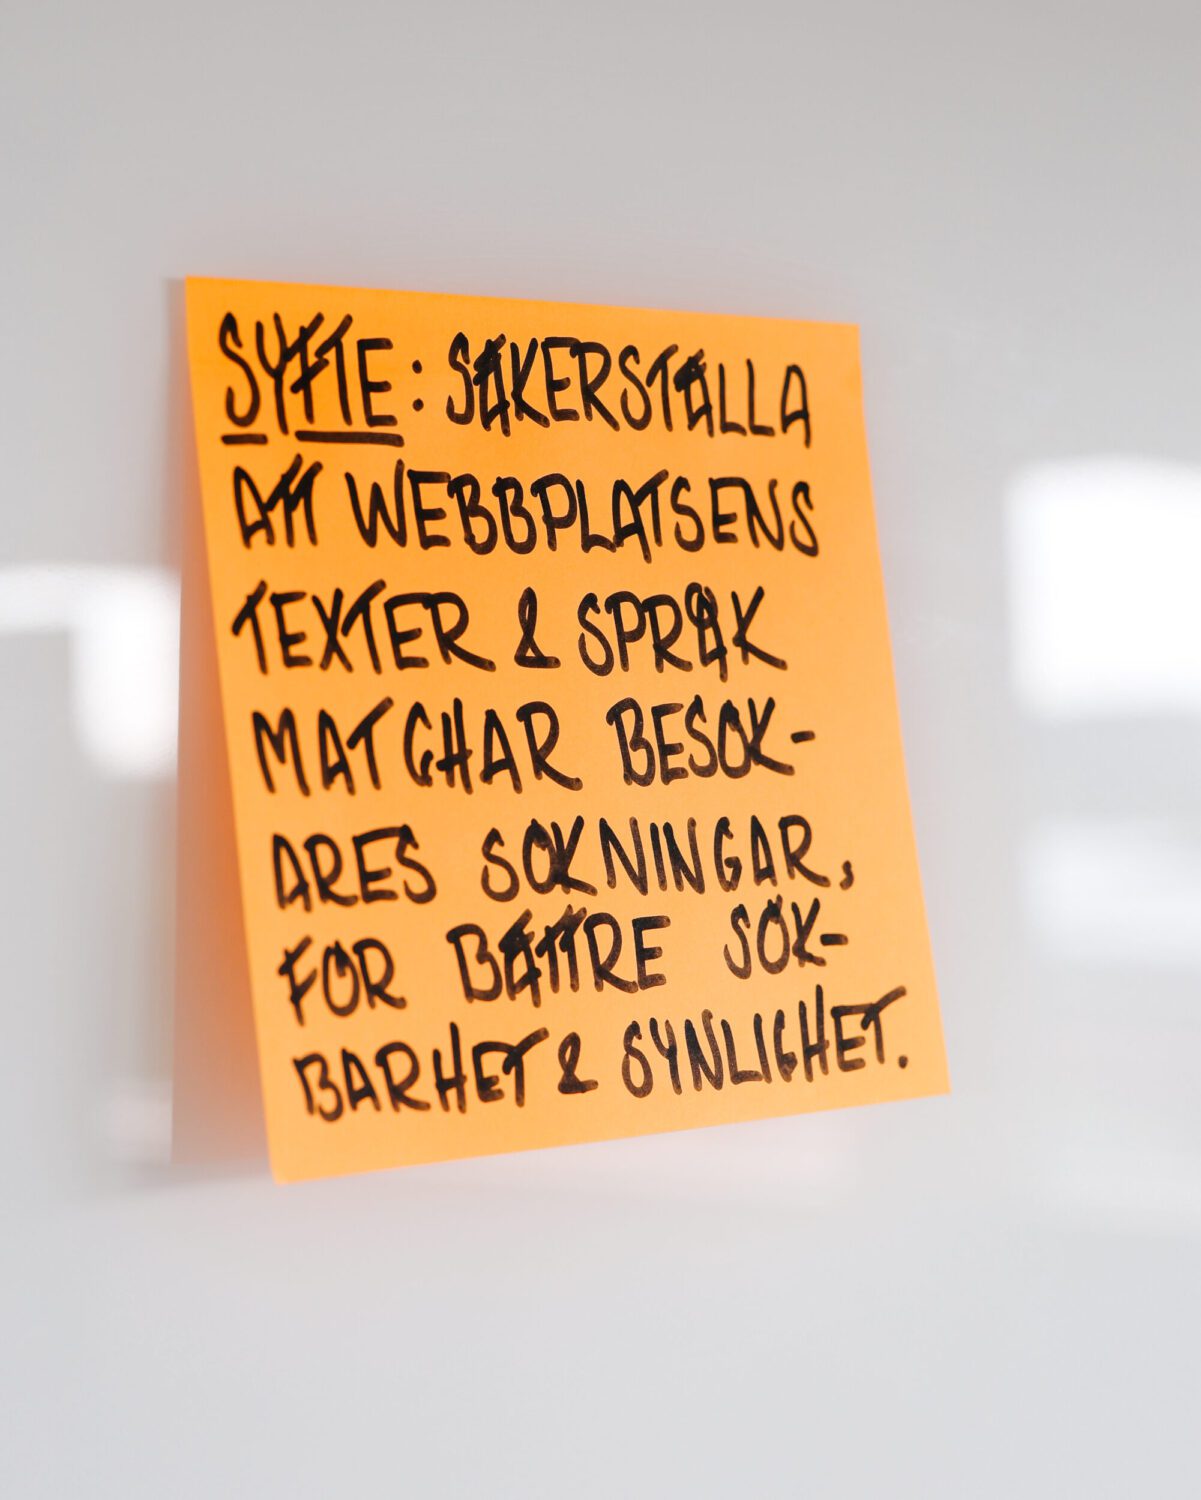 SYFTE: SÄKERSTÄLLA
ATT WEBBPLATSENS
TEXTER & SPRÅK
MATCHAR BESÖK-
ARES SÖKNINGAR,
FÖR BÄTTRE SÖK-
BARHET & SYNLIGHET.